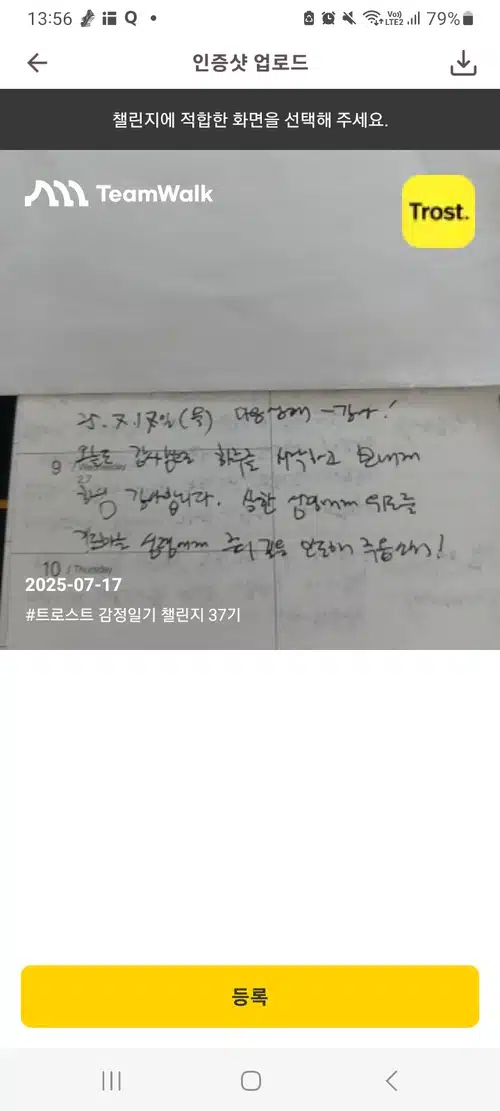 13:56 Q
Vo)) LTE2 79%
인증샷 업로드
챌린지에 적합한 화면을 선택해 주세요.
TeamWalk
Trost.
25. 7. 17일 (목) 마음상태 - 감사!
오늘도 감사함으로 하루를 시작하고 보내게
9 / Wednesday
27
하심 감사합니다. 심한
10 / Thursday
2025-07-17
#트로스트 감정일기 챌린지 37기
등록